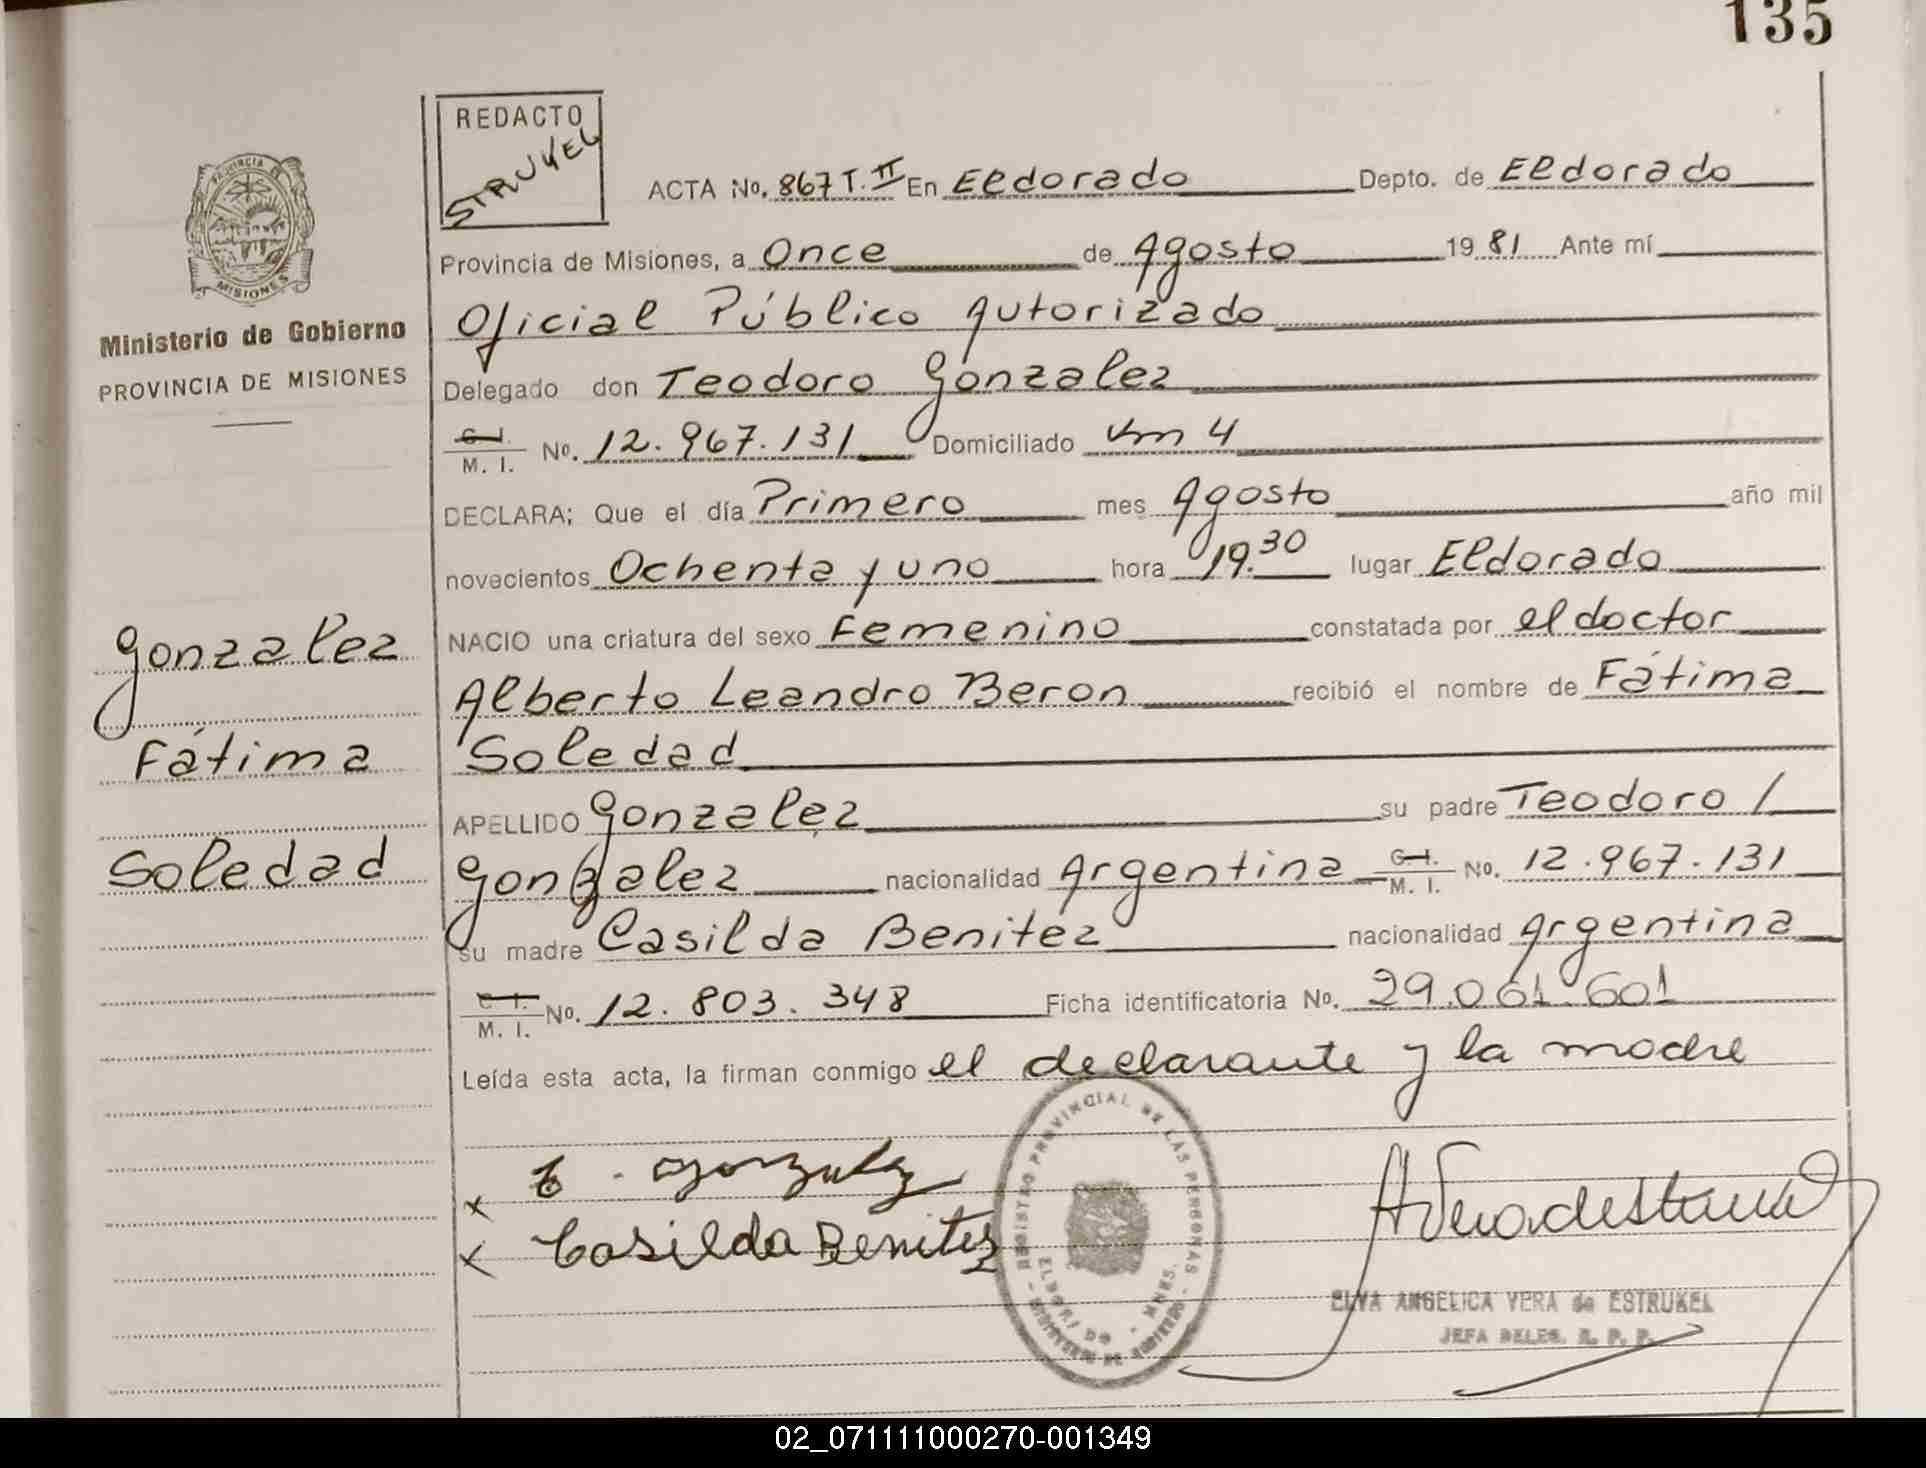 135
REDACTO
STRUKEL
PROVINCIA DE
MISIONES
Ministerio de Gobierno
PROVINCIA DE MISIONES
ACTA No. 867 T. II En Eldorado Depto. de Eldorado
Provincia de Misiones, a Once de Agosto 1981 Ante mí
Oficial Público Autorizado
Delegado don Teodoro Gonzalez
C. I.
M. I. No. 12.967.131 Domiciliado Km 4
DECLARA; Que el día Primero mes Agosto año mil
novecientos Ochenta y uno hora 19.30 lugar Eldorado
NACIO una criatura del sexo Femenino constatada por el doctor
Alberto Leandro Beron recibió el nombre de Fátima
Soledad
APELLIDO Gonzalez su padre Teodoro /
Gonzalez nacionalidad Argentina C. I.
M. I. No. 12.967.131
su madre Casilda Benitez nacionalidad Argentina
C. I.
M. I. No. 12.803.348 Ficha identificatoria No. 29.061.601
Leída esta acta, la firman conmigo el declarante y la madre
Gonzalez
Fátima
Soledad
x T. Gonzalez
x Casilda Benitez
REGISTRO PROVINCIAL DE LAS PERSONAS
ELDORADO
ELVA ANGELICA VERA de ESTRUKEL
JEFA DELEG. R. P. P.
02_071111000270-001349